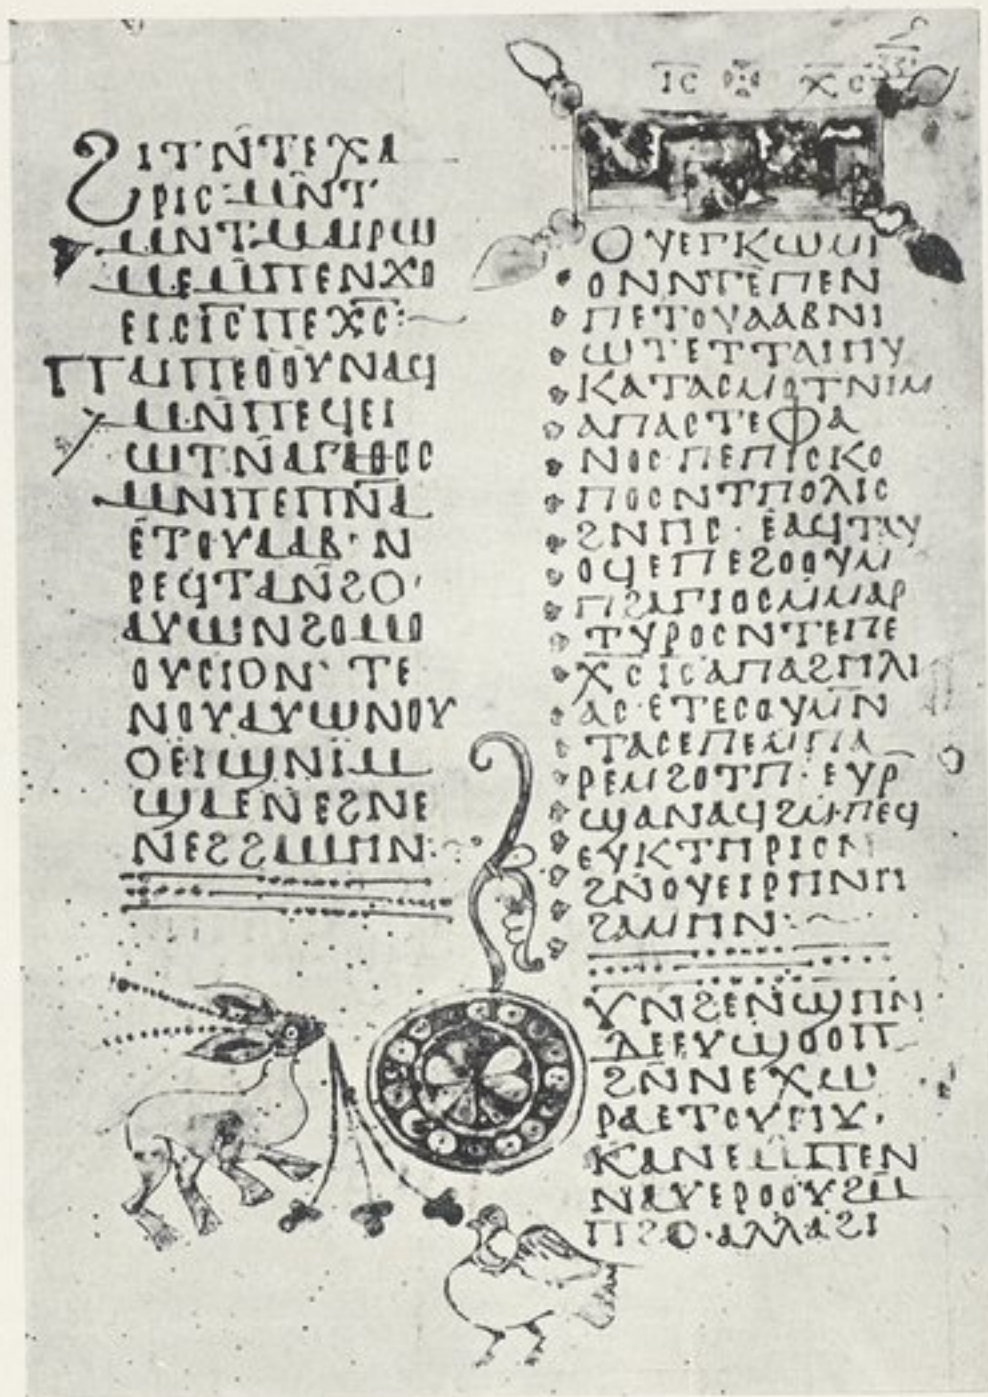 Ϩⲓⲧⲛ̄ⲧⲉⲭⲁ
ⲣⲓⲥ·ⲙⲛ̄ⲧ
ⲙⲛⲧⲙⲁⲓⲣⲱ
ⲙⲉⲙ̄ⲡⲉⲛϫⲟ
ⲉⲓⲥⲓ̅ⲥ̅ⲡⲉⲭ̅ⲥ̅:
ⲡⲁⲓⲡⲉⲟⲟⲩⲛⲁϥ
ⲙⲛ̄ⲡⲉϥⲉⲓ
ⲱⲧⲛ̄ⲁⲅⲁⲑⲟⲥ
ⲙⲛⲡⲉⲡ̅ⲛ̅ⲁ̅
ⲉⲧⲟⲩⲁⲁⲃ·ⲛ
ⲣⲉϥⲧⲁⲛ̄ϩⲟ·
ⲁⲩⲱⲛϩⲟⲙⲟ
ⲟⲩⲥⲓⲟⲛ· ⲧⲉ
ⲛⲟⲩⲁⲩⲱⲛⲟⲩ
ⲟⲉⲓϣⲛⲓⲙ
ϣⲁⲉⲛⲉϩⲛⲉ
ⲛⲉϩϩⲁⲙⲏⲛ:
ⲓ̅ⲥ̅ ⲭ̅ⲥ̅
ⲟⲩⲉⲅⲕⲱⲙⲓ
ⲟⲛⲛⲧⲉⲡⲉⲛ
ⲡⲉⲧⲟⲩⲁⲁⲃⲛⲓ
ⲱⲧⲉⲧⲧⲁⲓⲏⲩ
ⲕⲁⲧⲁⲥⲙⲟⲧⲛⲓⲙ
ⲁⲡⲁⲥⲧⲉⲫⲁ
ⲛⲟⲥ·ⲡⲉⲡⲓⲥⲕⲟ
ⲡⲟⲥⲛⲧⲡⲟⲗⲓⲥ
ϩⲛⲏⲥ·ⲉⲁϥⲧⲁⲩ
ⲟϥⲉⲡⲉϩⲟⲟⲩⲙ
ⲡϩⲁⲅⲓⲟⲥⲙⲙⲁⲣ
ⲧⲩⲣⲟⲥⲛⲧⲉⲡⲉ
ⲭ̅ⲥ̅ⲓ̅ⲥ̅ⲁⲡⲁϩⲏⲗⲓ
ⲁⲥ·ⲉⲧⲉⲥⲟⲩⲙⲛ
ⲧⲁⲥⲉⲡⲉⲙⲡⲁ
ⲣⲉⲙϩⲟⲧⲡ·ⲉⲩⲣ
ϣⲁⲛⲁϥϩⲙⲡⲉϥ
ⲉⲩⲕⲧⲏⲣⲓⲟⲛ
ϩⲛ̄ⲟⲩⲉⲓⲣⲏⲛⲏ
ϩⲁⲙⲏⲛ:
ⲩⲛϩⲉⲛϣⲏⲛ
ⲇⲉⲉⲩϣⲟⲟⲡ
ϩⲛ̄ⲛⲉⲭⲱ
ⲣⲁⲉⲧⲟⲩⲏⲩ·
ⲕⲁⲛⲉⲙⲡⲉⲛ
ⲛⲁⲩⲉⲣⲟⲟⲩϩⲙ
ⲡϩⲟ·ⲁⲗⲗⲁϩⲓ